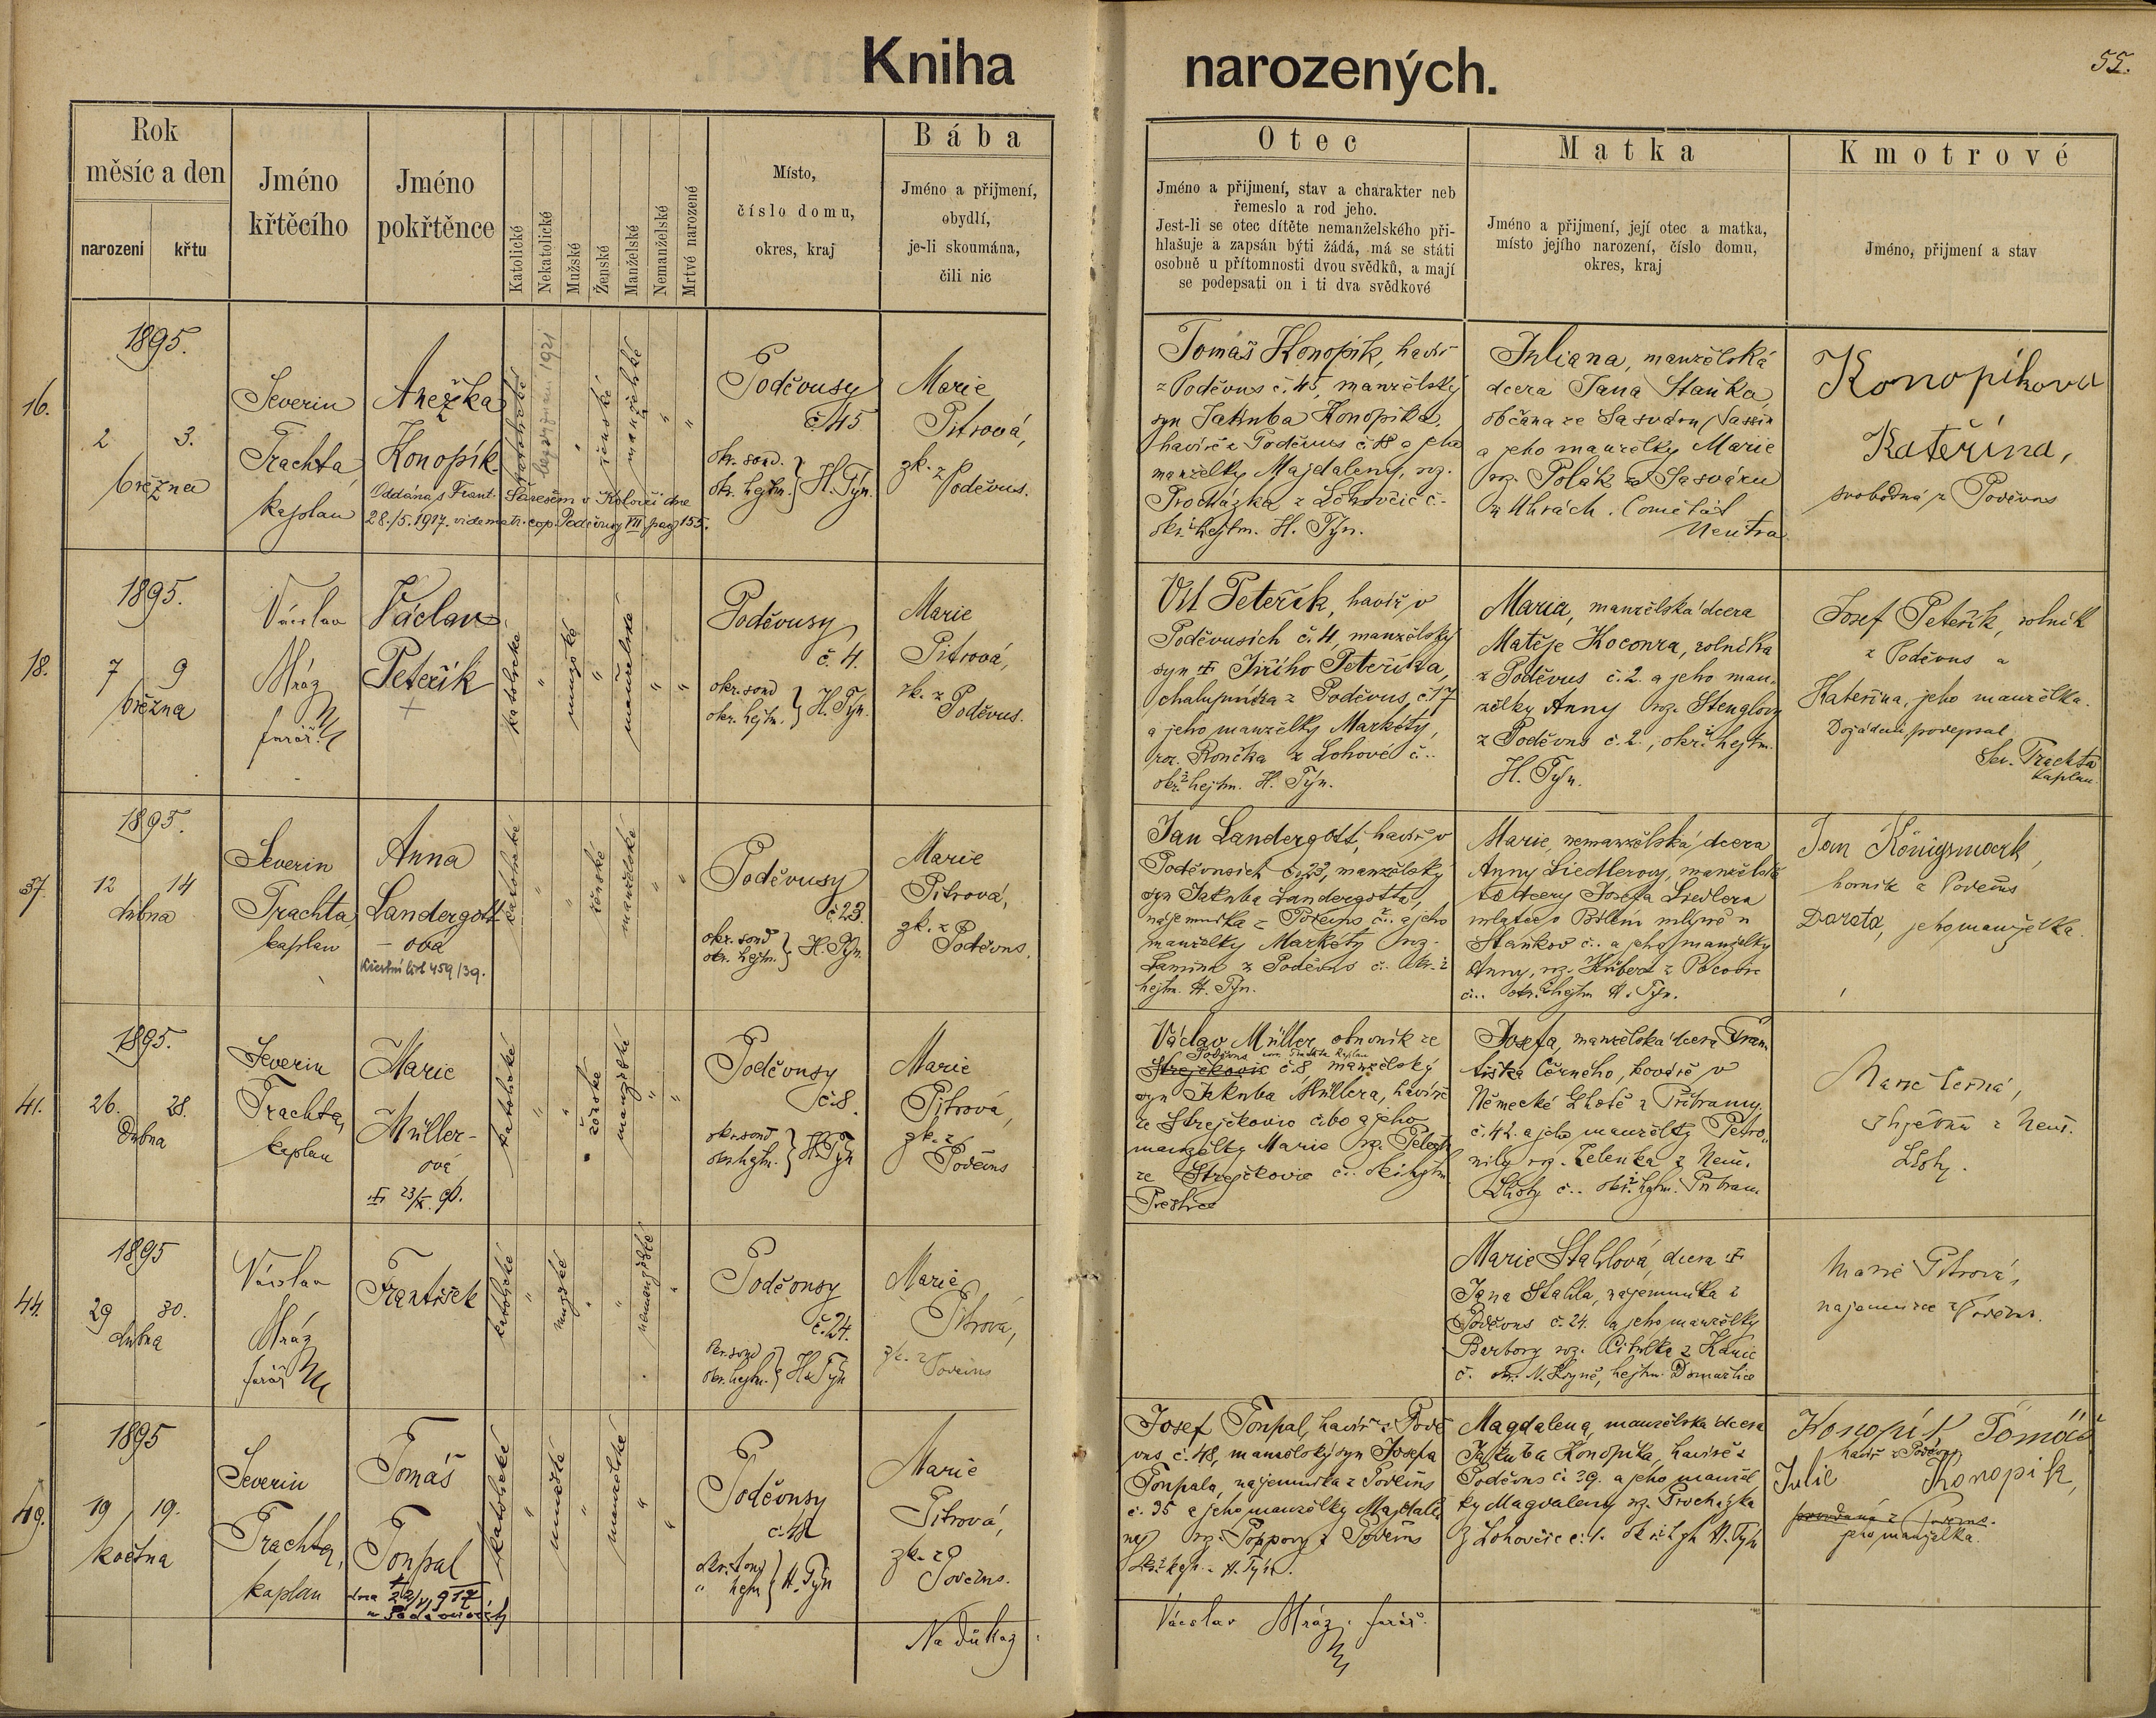 Kniha narozených.
55.
Rok
měsíc a den
narození
křtu
Jméno
křtěcího
Jméno
pokřtěnce
Katolické
Nekatolické
Mužské
Ženské
Manželské
Nemanželské
Mrtvé narozené
Místo,
číslo domu,
okres, kraj
Bába
Jméno a příjmení,
obydlí,
je-li skoumána,
čili nic
Otec
Jméno a příjmení, stav a charakter neb
řemeslo a rod jeho.
Jest-li se otec dítěte nemanželského při-
hlašuje a zapsán býti žádá, má se státi
osobně u přítomnosti dvou svědků, a mají
se podepsati on i ti dva svědkové
Matka
Jméno a příjmení, její otec a matka,
místo jejího narození, číslo domu,
okres, kraj
Kmotrové
Jméno, příjmení a stav
16.
1895.
2 3.
března
Severin
Trachta,
kaplan
Anežka
Konopík
Oddána s Frant. v dne
28./5. 1917. vide matr. cop. Poděvusy VII pag 155.
katolické
1921
ženské
manželské
Poděvusy
č. 45
okr. soud.
okr. hejtm. } H. Týn.
Marie
Pitrová,
zk. z
Poděvus.
Tomáš Konopík, havíř
z Poděvus č. 45, manželský
syn Jakuba Konopíka,
havíře z Poděvus č. 18 a jeho
manželky Majdaleny, roz.
Procházka z Lohovčic č.
okr. i hejtm. H. Týn.
Juliana, manželská
dcera Jana Stanka,
občana ze Sasváru
a jeho manželky Marie
roz. Polák ze Sasváru
v Uhrách. Comitát
Neutra
Konopíkova
Kateřina,
svobodná z Poděvus
18.
1895.
7 9
března
Václav
Mráz
farář
Václav
Peteřík
katolické
mužské
manželské
Poděvusy
č. 4.
okr. soud
okr. hejtm. } H. Týn.
Marie
Pitrová,
zk. z
Poděvus.
Vít Peteřík, havíř v
Poděvusích č. 4, manželský
syn Jiřího Peteříka,
chalupníka z Poděvus č. 17
a jeho manželky Markéty,
roz. Rončka z Lohové č.
okr. i hejtm. H. Týn.
Maria, manželská dcera
Matěje Kocoura, rolníka
z Poděvus č. 2. a jeho man-
želky Anny roz. Stenglovy
z Poděvus č. 2., okr. i hejtm.
H. Týn.
Josef Peteřík, rolník
z Poděvus a
Kateřina, jeho manželka.
podepsal
Sev. Trachta
kaplan
37.
1895.
12 14
dubna
Severin
Trachta,
kaplan
Anna
Landergott
- ova
Křestní list 459/39.
katolické
ženské
manželské
Poděvusy
č. 23.
okr. soud
okr. hejtm. } H. Týn.
Marie
Pitrová,
zk. z
Poděvus.
Jan Landergott, havíř v
Poděvusích č. 23, manželský
syn Jakuba Landergotta,
nájemníka z Poděvus č. a jeho
manželky Markéty roz.
z Poděvus č. okr. i
hejtm. H. Týn.
Marie, nemanželská dcera
Anny Siedlerovy, manželské
dcery Josefa Siedlera
u
Staňkov č. a jeho manželky
Anny, roz. Huber z
č. okr. i hejtm. H. Týn.
Jan Königsmark,
horník z Poděvus
Dorota, jeho manželka.
41.
1895.
26. 28.
Dubna
Severin
Trachta,
kaplan
Marie
Müller-
ová
katolické
ženské
manželské
Poděvusy
č. 8.
okr. soud
okr. hejtm. } H. Týn
Marie
Pitrová,
zk. z
Poděvus
Václav Müller, ze
Poděvus
Strejčkovic č. 8, manželský
syn Jakuba Müllera, havíře
ze Strejčkovic č. a jeho
manželky Marie roz.
ze Strejčkovic č. okr. i hejtm.
Přeštice
Josefa, manželská dcera Fran-
tiška Černého, kováře v
Německé Lhotě z Příbramy
č. 42. a jeho manželky Petro-
nily roz. Zelenka z Něm.
Lhoty č. okr. i hejtm. Příbram
Marie Černá,
z Něm.
Lhoty.
44.
1895
29 30.
dubna
Václav
Mráz
farář
František
katolické
mužské
nemanželské
Poděvusy
č. 24.
okr. soud
okr. hejtm. } H. Týn
Marie
Pitrová,
zk. z Poděvus
Marie Stahlová, dcera
Jana Stahla, nájemníka z
Poděvus č. 24. a jeho manželky
Barbory roz. z Kanic
č. okr. N. Kdyně, hejtm. Domažlice
Marie Pitrová,
nájemnice z Poděvus.
49.
1895
19 19.
května
Severin
Trachta,
kaplan
Tomáš
Toupal
katolické
mužské
manželské
Poděvusy
č. 48
okr. soud
" hejtm. } H. Týn
Marie
Pitrová,
zk. z
Poděvus.
Josef Toupal, havíř z Podě-
vus č. 48, manželský syn Josefa
Toupala, nájemníka z Poděvus
č. 35 a jeho manželky Majdale-
ny roz. Poppovy z Poděvus
okr. i hejt. H. Týn.
Magdalena, manželská dcera
Jakuba Konopíka, havíře z
Poděvus č. 39. a jeho manžel-
ky Magdaleny roz. Procházka
z Lohovčic č. 1. okr. i hejt. H. Týn
Konopík Tomáš
havíř z Poděvus
Julie Konopík,
jeho manželka.
Na důkaz:
Václav Mráz, farář.